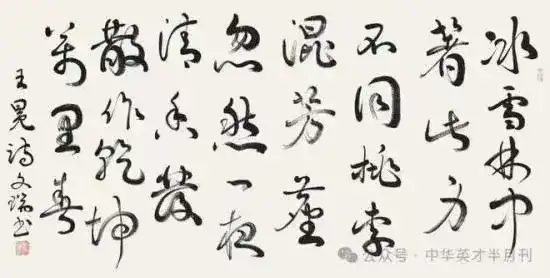 冰雪林中
著此身
不同桃李
混芳尘
忽然一夜
清香发
散作乾坤
万里春
王冕诗文瑞书
公众号·中华英才半月刊